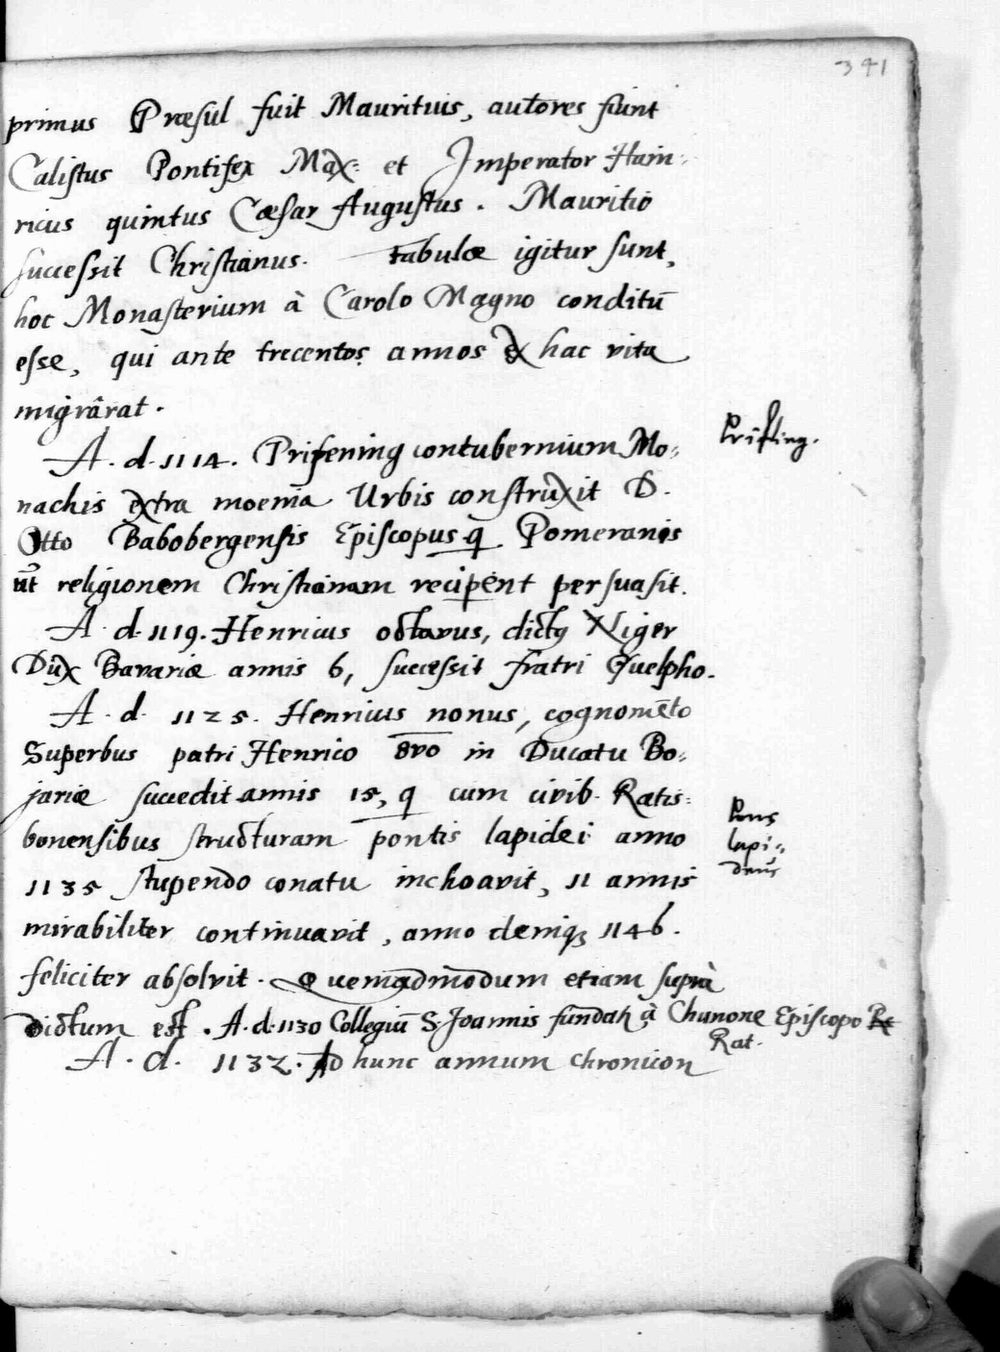 341
primus Præsul fuit Mauritius, autores sunt
Calistus Pontifex Max: et Imperator Hain-
ricus quintus Cæsar Augustus. Mauritio
successit Christianus. tabulæ igitur sunt,
hoc Monasterium à Carolo Magno conditū
esse, qui ante trecentos annos ex hac vita
migrârat.
A. d. 1114. Prifening contubernium Mo-
nachis extra moenia Urbis construxit D.
Otto Babobergensis Episcopus q̃ Pomeranis
ut religionem Christianam recipent persuasit.
Prifling.
A. d. 1119. Henricus octavus, dictꝰ Niger
Dux Bavariæ annis 6, successit fratri Quelpho.
A. d. 1125. Henrius nonus, cognomēto
Superbus patri Henrico 8vo in Ducatu Bo-
jariæ succedit annis 15, q̃ cum civib. Ratis-
bonensibus structuram pontis lapidei anno
1135 stupendo conatu inchoavit, 11 annis
mirabiliter continuavit, anno deniqꝫ 1146.
feliciter absolvit. Quemadmodum etiam suprà
dictum est. A. d. 1130 Collegiū S. Joannis fundat à Chunone Episcopo
Rat.
Pons
lapi-
deus
A. d. 1132. Ad hunc annum chronicon